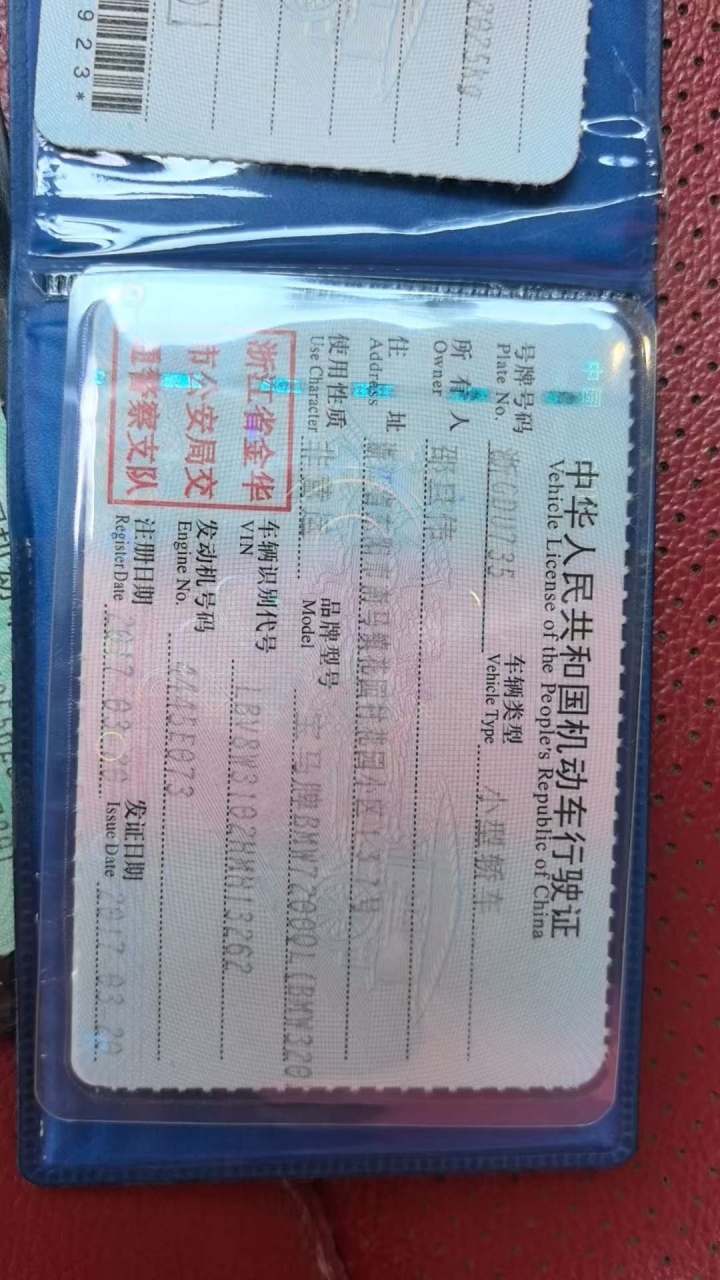 2025kg
923*
中华人民共和国机动车行驶证
Vehicle License of the People's Republic of China
号牌号码 浙GDU735 车辆类型 小型轿车
Plate No. Vehicle Type
所有人 邵 伟
Owner
住址 浙江省 南马镇花园村花园小区137号
Address
使用性质 非营运 品牌型号 宝马牌BMW7200QL(BMW320
Use Character Model
浙江省金华 车辆识别代号 LBV8W3102HMH13262
市公安局交 VIN
通警察支队 发动机号码 0445E073
Engine No.
注册日期 2017-03-20 发证日期 2017-03-20
RegisterDate Issue Date